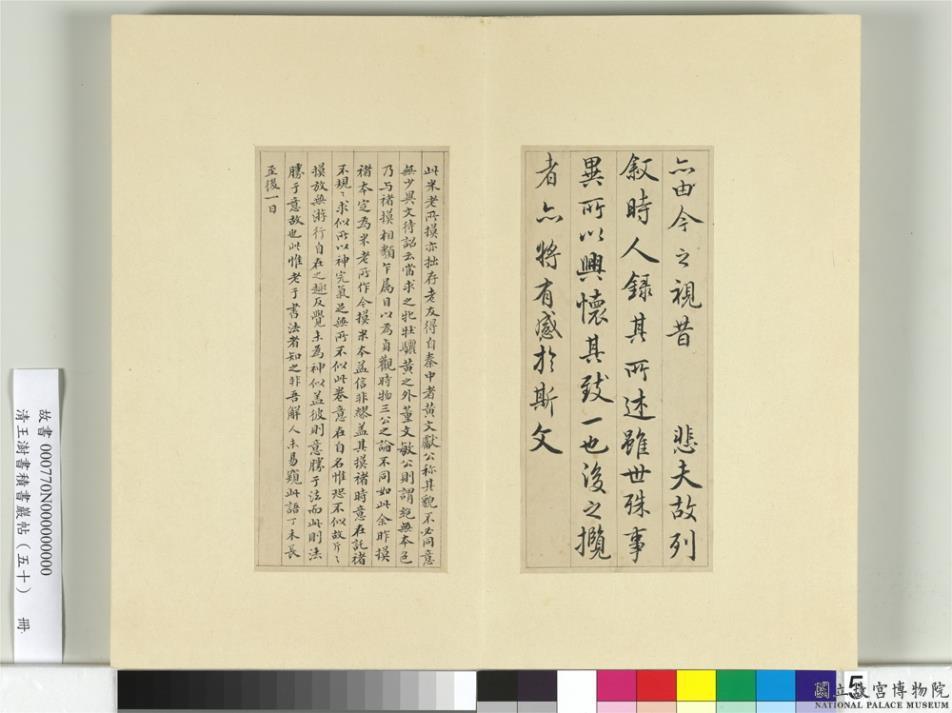 亦由今之視昔 悲夫故列
敘時人錄其所述雖世殊事
異所以興懷其致一也後之攬
者亦將有感於斯文
此米老所摸亦拙存老友得自秦中者黃文獻公称其觀不必同意
無少異文待詔云當求之牝牡驪黃之外董文敏公則謂絕無本色
乃与褚摸相類乍屬目以為貞觀時物三公之論不同如此余昨摸
褚本定為米老所作今摸米本益信非繆蓋其摸褚時意在託褚
不規〻求似所以神完氣足無所不似此卷意在自名惟恐不似故斤〻
摸放無游行自在之趣反覺未為神似盖彼則意勝于法而此則法
勝于意故也此惟老于書法者知之非吾解人未易窺此語丁未長
至後一日
故書 000770N000000000
清王澍書積書巖帖（五十） 冊
5
國立故宮博物院
NATIONAL PALACE MUSEUM